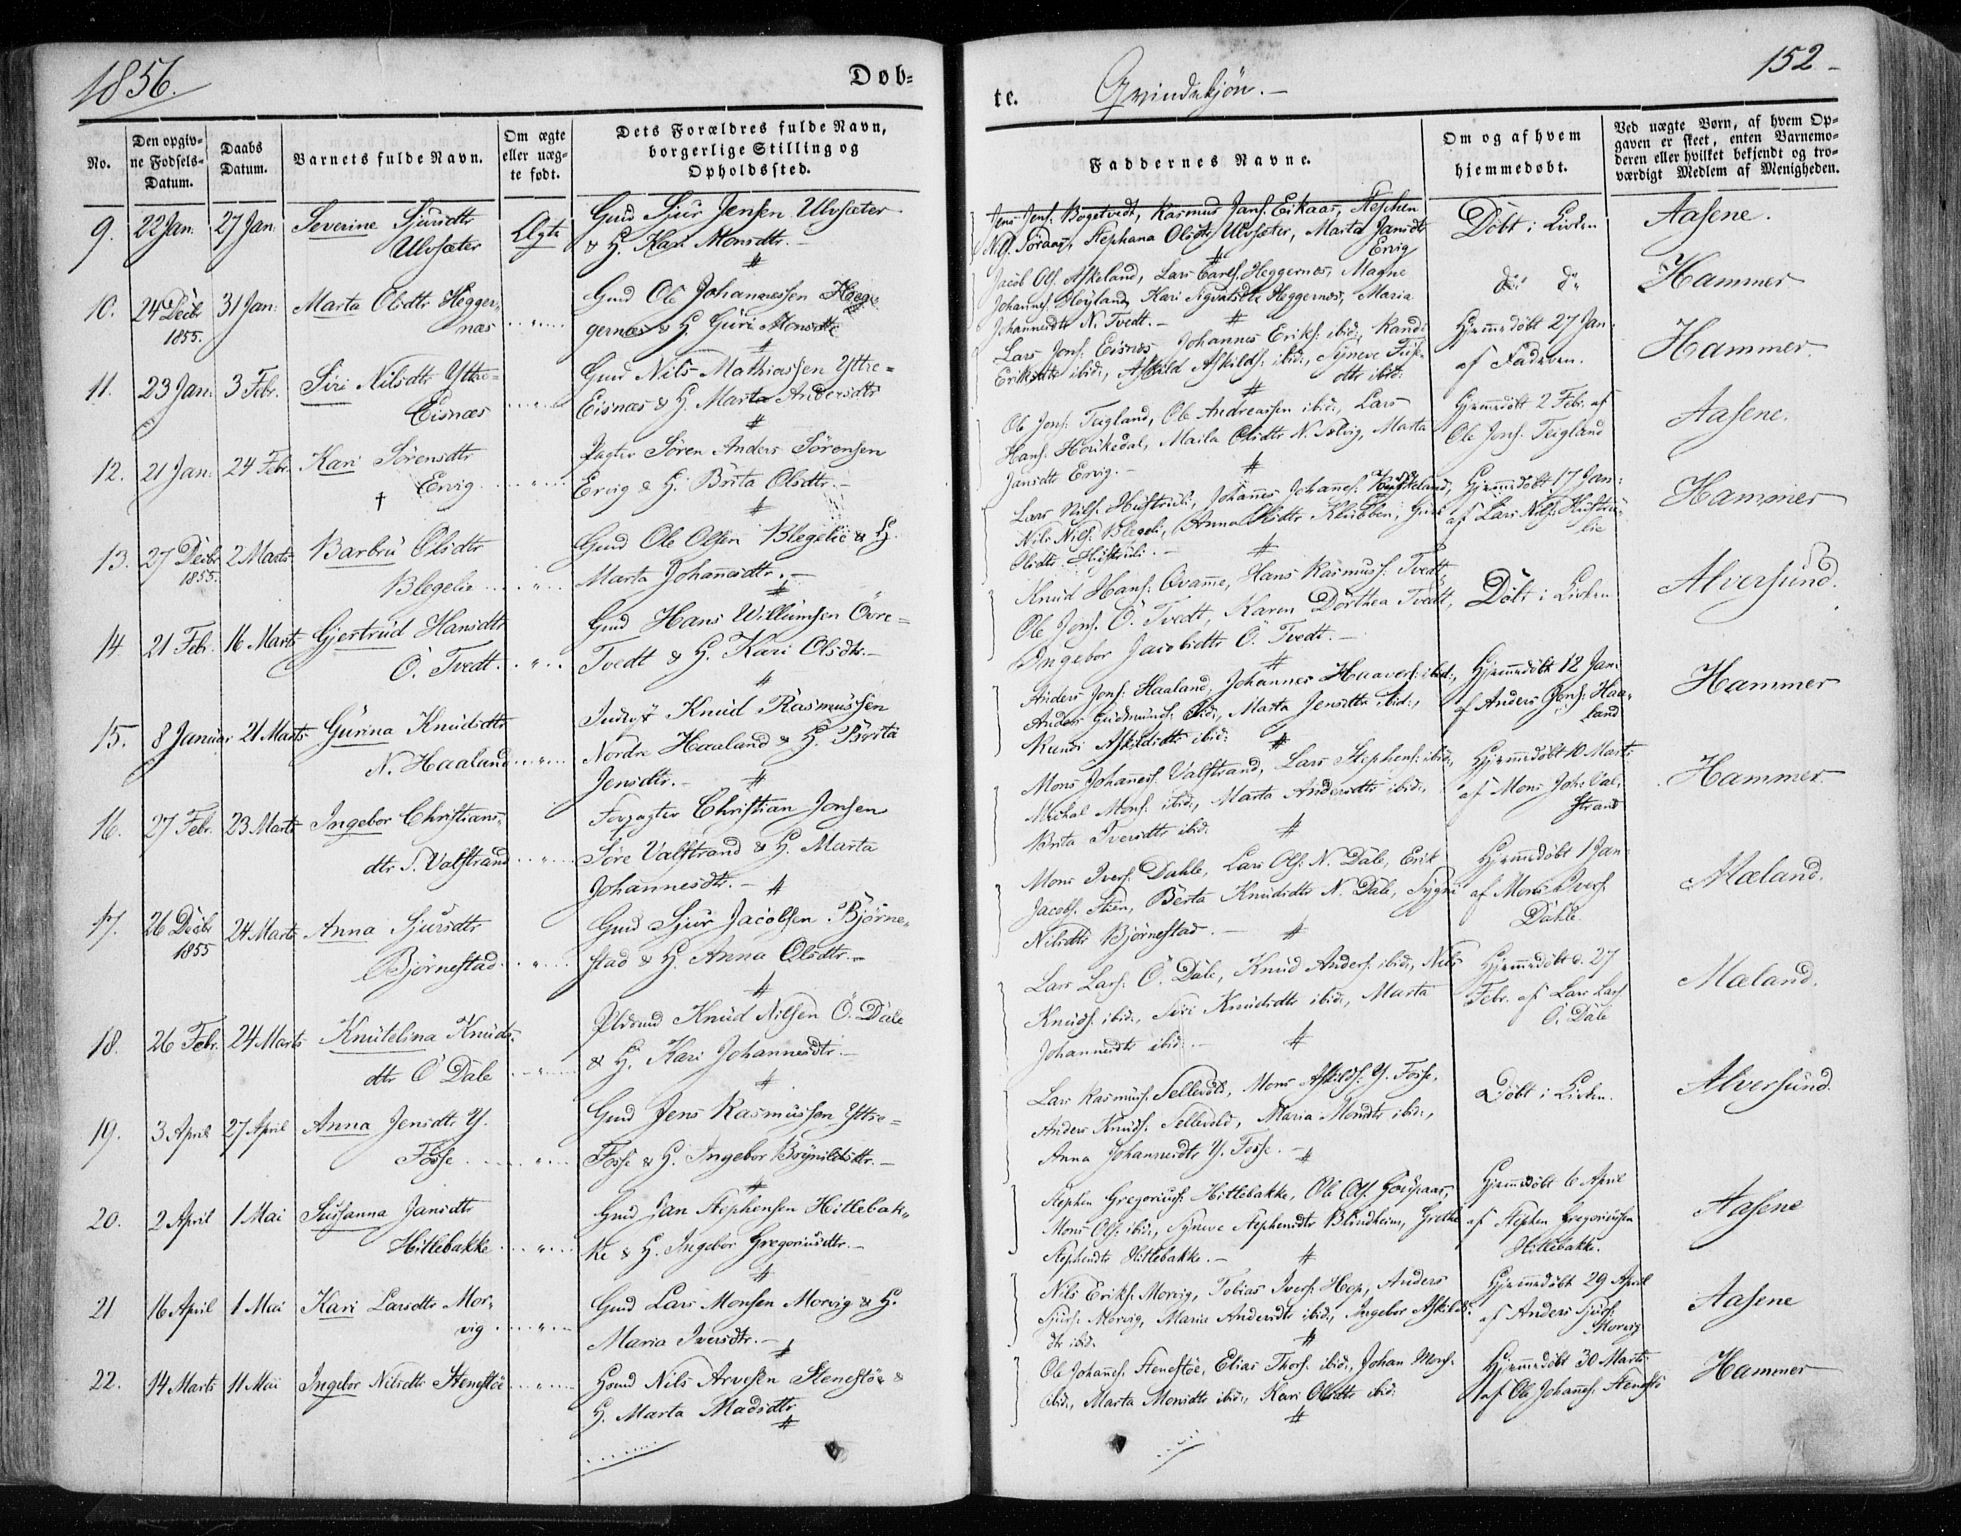 1856.
Døb=
No.
Den opgiv-
ne Fødsels-
Datum.
Daabs
Datum.
Barnets fulde Navn.
Om ægte
eller uæg-
te født.
Dets Forældres fulde Navn,
borgerlige Stilling og
Opholdssted.
9. 22 Jan. 27 Jan. Severine Sjursdtr Ægte Gmd Sjur Jensen Ulvsæter
Ulvsæter & H. Kari Monsdtr.-
10. 24 Decbr 31 Jan: Marta Olsdtr Hegger- Gmd Ole Johannessen
1855. næs " gernæs & H Guri Monsdtr
11. 23 Jan: 3 Febr. Siri Nilsdtr Yttre- Gmd Nils Mathiassen Yttre=
Eisnæs " Eisnæs & H. Marta Andersdtr
12. 21 Jan: 24 Febr. Kari Sørensdtr Søren Anders Sørensen
† Ervig " Ervig & H. Brita Olsdtr.-
13. 27 Decbr 2 Marts Barbru Olsdtr Gmd Ole Olsen Blegelie & H.
1855. Blegelie " Marta Johannesdtr.-
14 21 Febr. 16 Marts Gjertrud Hansdtr Gmd Hans Willumsen Övre=
Ö. Tvedt. " Tvedt & H. Kari Olsdtr.-
15. 8 Januar 21 Marts Gurina Knudsdtr Inderst Knud Rasmussen
N. Haaland " Nordre Haaland & H. Brita
Jensdtr.-
16. 27 Febr. 23 Marts Ingebor Christians- Forpagter Christian Jonsen
dtr S. Valstrand " Søre Valstrand & H. Marta
Johannesdtr.-
17. 26 Decbr 24 Marts Anna Sjursdtr Gmd Sjur Jacobsen Bjørne-
1855 Bjørnestad " stad & H. Anna Olsdtr.-
18. 26 Febr. 24 Marts Knutelina Knuds- Knud Nilsen Ö. Dale
dtr Ö Dale " & H. Kari Johannesdtr.-
19. 3 April 27 April Anna Jensdtr Y. Gmd Jens Rasmussen Yttre=
Fosse " Fosse & H. Ingebor Brynildsdtr.-
20. 2 April 1 Mai Susanna Jansdtr Gmd Jan Stephensen Hillebak-
Hillebakke " ke & H. Ingebor Gregoriusdtr.-
21 16 April 1 Mai Kari Larsdtr Mor- Gmd Lars Monsen Morvig & H.
vig " Maria Iversdtr.-
22. 14 Marts 11 Mai Ingebor Nilsdtr Stenestöe " Nils Arvesen Stenestöe &
H. Marta Madsdtr
te.
Qvindekjön.-
152-
Faddernes Navne.
Om og af hvem
hjemmedøbt.
Ved uægte Børn, af hvem Op-
gaven er skeet, enten Barnemo-
deren eller hvilket bekjendt og tro-
værdigt Medlem af Menigheden.
Jens Jens: Bogetvedt, Rasmus Jans: Eikaas, Stephen
Stephana Olsdtr Ulvsæter, Marta Jansdtr Döbt i Kirken Aasene.
Ervig
Jacob Ols: Askeland, Lars Heggernæs, Magne
Johannes: Höyland, Kari Sigvatsdtr Heggernæs, Maria do do Hammer
Johannesdtr N. Tvedt.-
Lars Jons: Eisnæs, Johannes Eriks: ibid:, Randi Hjemmedöbt 27 Jan: Hammer.
Eriksdtr ibid:, Askild Askilds: ibid:, Syneve af Faderen.
dtr ibid:
Ole Jons: Teigland, Ole Andreassen ibid:, Lars Hjemmedöbt 2 Febr: af Aasene.
Hans: Maila Olsdtr N. Marta Ole Jons: Teigland
Jansdtr Ervig.-
Lars Nils: Hustruli:, Johannes Johannes: Hjemmedöbt 17 Jan: Hammer
Nils Nils: Blegeli, Anna Olsdtr Klubben, Guri af Lars Nils: Hustru-
Olsdtr Hustruli.- lie
Knud Hans: Qvamme, Hans Rasmuss: Tvedt, Alversund.
Ole Jons: Ö. Tvedt, Karen Dorthea Tvedt, Döbt i Kirken
Ingebor Jacobsdtr Ö. Tvedt.-
Anders Jons: Haaland, Johannes Haavers: ibid:, Hjemmedöbt 12 Jan: Hammer
Anders Gudmunds: ibid:, Marta Jensdtr ibid:, af Anders Jons: Haa-
Randi Askildsdtr ibid: land
Mons Johannes: Valstrand, Lars Stephens: ibid:, Hjemmedöbt 10 Marts Hammer
Michal Mons: ibid:, Marta Andersdtr ibid:, af Mons Joh: Val-
Brita Iversdtr ibid: strand
Mons Ivers: Dahle, Lars Ols: N. Dale, Erik Hjemmedöbt 1 Jan: Mæland.
Jacobs: Stien, Berta Knudsdtr N. Dale, Sygni af Mons Ivers:
Nilsdtr Bjørnestad.- Dahle.
Lars Lars: Ö. Dale, Knud Anders: ibid:, Nils Hjemmedöbt d. 27 Mæland.
Knuds: ibid:, Siri Knudsdtr ibid:, Marta Febr. af Lars Lars:
Johannesdtr ibid:- Ö. Dale
Lars Rasmus: Sellevold, Mons Askilds: Y. Fosse, Döbt i Kirken. Alversund.
Anders Knuds: Sellevold, Maria Monsdtr ibid:,
Anna Johannesdtr Y. Fosse.-
Stephen Gregorius: Hillebakke, Ole Ols: Hjemmedöbt 6 April Aasene
Mons Ols: ibid:, Syneve Stephensdtr Blindheim, Grethe af Stephen Gregoriussen
Stephensdtr Hillebakke.- Hillebakke.
Nils Eriks: Morvig, Tobias Ivers: Hop, Anders Hjemmedöbt 29 April Aasene
Sjurs: Morvig, Maria Andersdtr ibid:, Ingebor Askilds- af Anders Sjurs:
dtr ibid: Morvig
Ole Johannes: Stenestöe, Elias Thors: ibid:, Johan Mons: Hjemmedöbt 30 Marts Hammer
ibid:, Marta Monsdtr ibid:, Kari Olsdtr ibid: af Ole Johannes: Stenestö